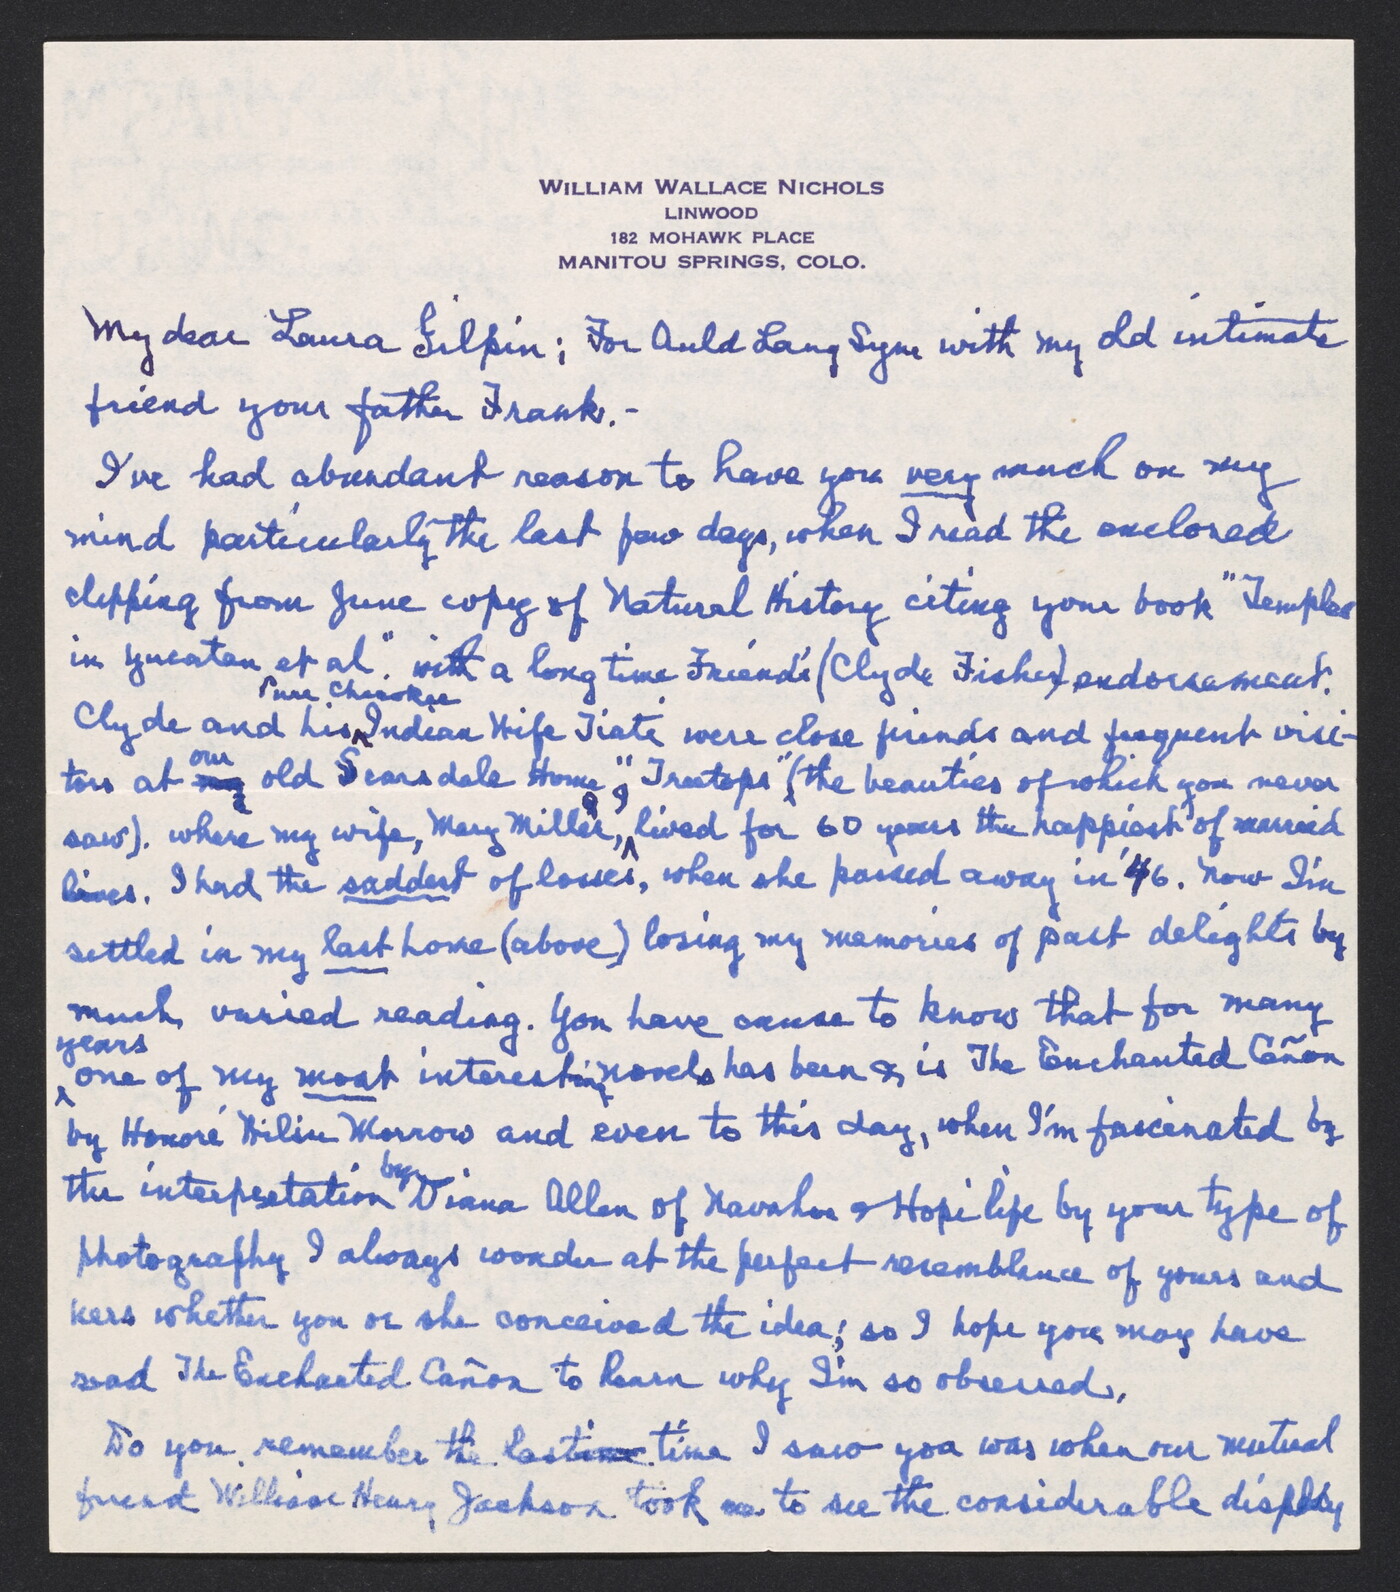 WILLIAM WALLACE NICHOLS
LINWOOD
182 MOHAWK PLACE
MANITOU SPRINGS, COLO.
My dear Laura Gilpin; For Auld Lang Syne with my old intimate
friend your father Frank.-
I've had abundant reason to have you very much on my
mind particularly the last few days, when I read the enclosed
clipping from June copy of Natural History citing your book "Temples
in Yucatan et al". with a long time Friend's (Clyde Fisher) endorsement.
Pure Cherokee
Clyde and his Indian Wife Tiaté were close friends and frequent visi-
our
tors at my old Scarsdale Home, "Treetops" (the beauties of which you never
saw). where my wife, Mary Miller, lived for 60 years the happiest of married
lives. I had the saddest of losses, when she passed away in '46. Now I'm
settled in my last home (above) losing my memories of past delights by
much varied reading. You have cause to know that for many
years
one of my most interesting novels has been & is The Enchanted Cañon
by Honoré Wilsie Morrow and even to this day, when I'm fascinated by
by
the interpretation Diana Allen of Navahoe & Hopi life by your type of
photography I always wonder at the perfect resemblence of yours and
hers whether you or she conceived the idea; so I hope you may have
read The Enchanted Cañon to learn why I'm so obsessed.
Do you remember the last time I saw you was when our mutual
friend William Henry Jackson took me to see the considerable display